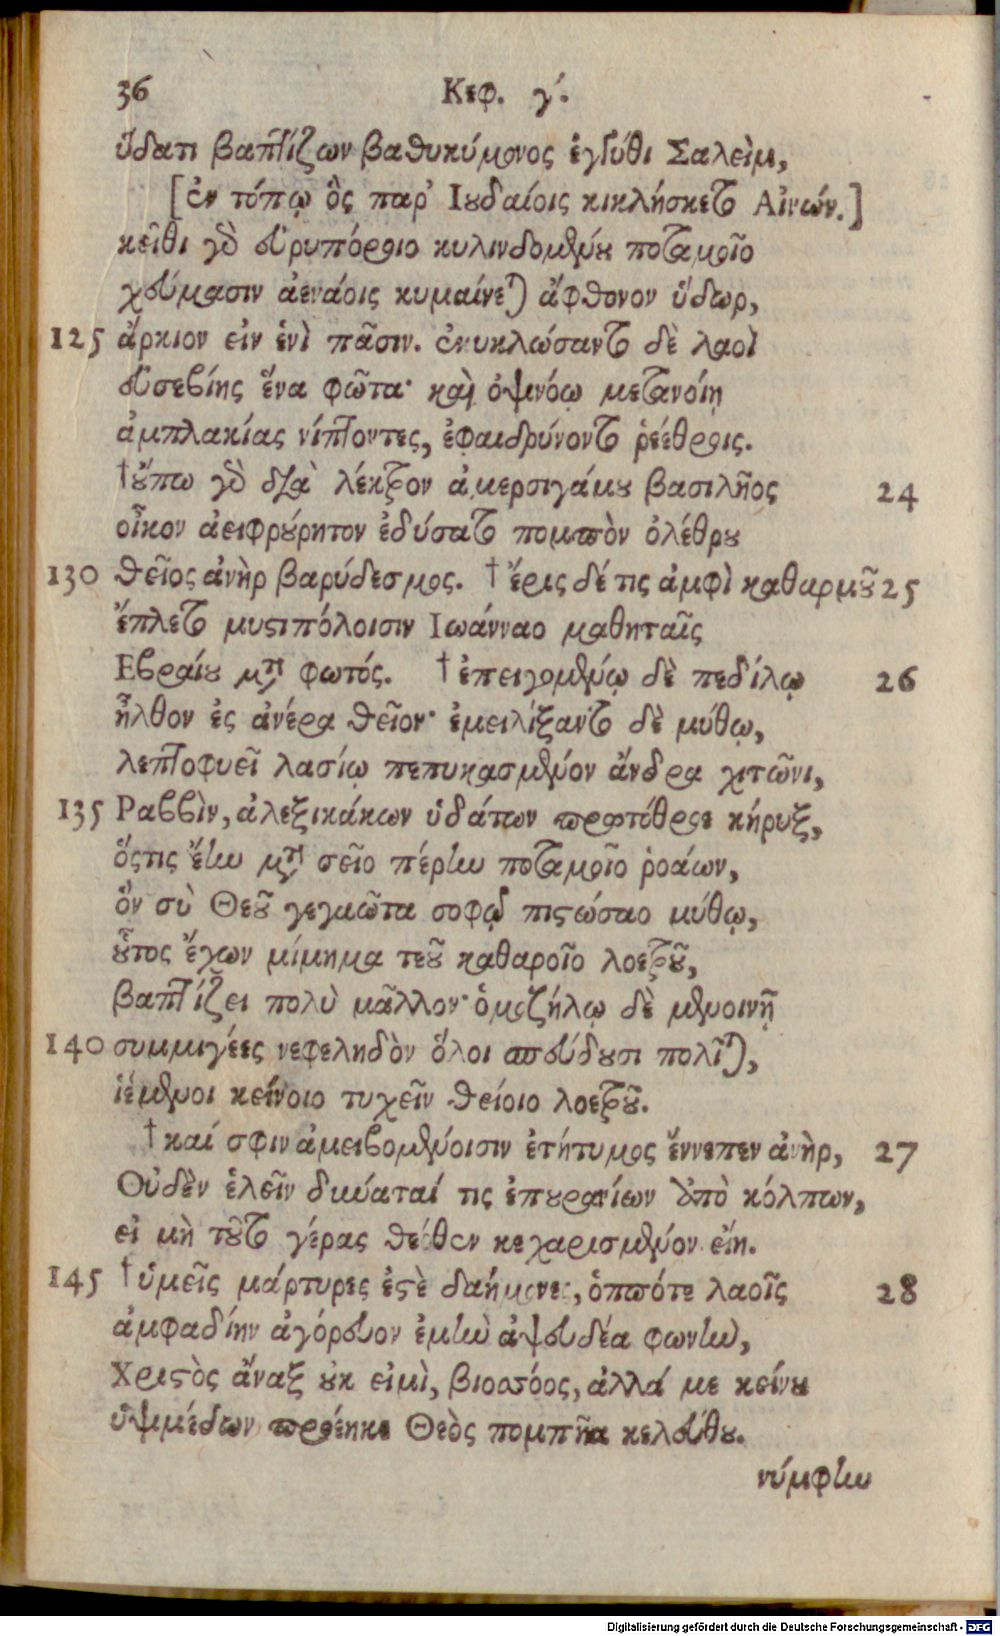 36 Κεφ. γ΄.
ὕδατι βαπτίζων βαθυκύμονος ἐγγύθι Σαλεὶμ,
[ἐν τόπῳ ὃς παρ' Ιουδαίοις κικλήσκετο Αἰνών.]
κεῖθι γὸ εὐρυπόροιο κυλινδομένου ποταμοῖο
χεύμασιν ἀενάοις κυμαίνεται ἄφθονον ὕδωρ,
125 ἄρκιον εἰν ἑνὶ πᾶσιν. ἐνυκλώσαντο δὲ λαοὶ
εὐσεβίης ἕνα φῶτα· καὶ ὀψινόῳ μετανοίῃ
ἀμπλακίας νίπτοντες, ἐφαιδρύνοντο ῥεέθροις.
†οὔπω γὸ διὰ λέκτρον ἀκερσιγάμου βασιλῆος 24
οἶκον ἀειφρούρητον ἐδύσατο πομπὸν ὀλέθρου
130 θεῖος ἀνὴρ βαρύδεσμος. †ἔρις δέ τις ἀμφὶ καθαρμοῦ 25
ἔπλετο μυστιπόλοισιν Ιωάνναο μαθηταῖς
Εβραίου μετὰ φωτός. †ἐπειγομένῳ δὲ πεδίλῳ 26
ἦλθον ἐς ἀνέρα θεῖον· ἐμειλίξαντο δὲ μύθῳ,
λεπτοφυεῖ λασίῳ πεπυκασμένον ἄνδρα χιτῶνι,
135 Ραββὶν, ἀλεξικάκων ὑδάτων πρωτόθροε κήρυξ,
ὅστις ἔην μετὰ σεῖο πέρην ποταμοῖο ῥοάων,
ὃν σὺ Θεοῦ γεγαῶτα σοφῷ πιστώσαο μύθῳ,
οὗτος ἔχων μίμημα τεοῦ καθαροῖο λοετροῦ,
βαπτίζει πολὺ μᾶλλον· ὁμοζήλῳ δὲ μενοινῇ
140 συμμιγέες νεφεληδὸν ὅλοι σπεύδουσι πολῖται,
ἱέμενοι κείνοιο τυχεῖν θείοιο λοετροῦ.
†καί σφιν ἀμειβομένοισιν ἐτήτυμος ἔννεπεν ἀνὴρ, 27
Οὐδὲν ἑλεῖν δύναταί τις ἐπουρανίων ἀπὸ κόλπων,
εἰ μὴ τοῦτο γέρας θεόθεν κεχαρισμένον εἴη.
145 †ὑμεῖς μάρτυρες ἐστὲ δαήμονες, ὁππότε λαοῖς 28
ἀμφαδίην ἀγόρευον ἐμὴν ἀψευδέα φωνὴν,
Χριστὸς ἄναξ οὐκ εἰμὶ, βιοσσόος, ἀλλά με κείνου
ὑψιμέδων προέηκε Θεὸς πομπῆα κελεύθου.
νύμφην